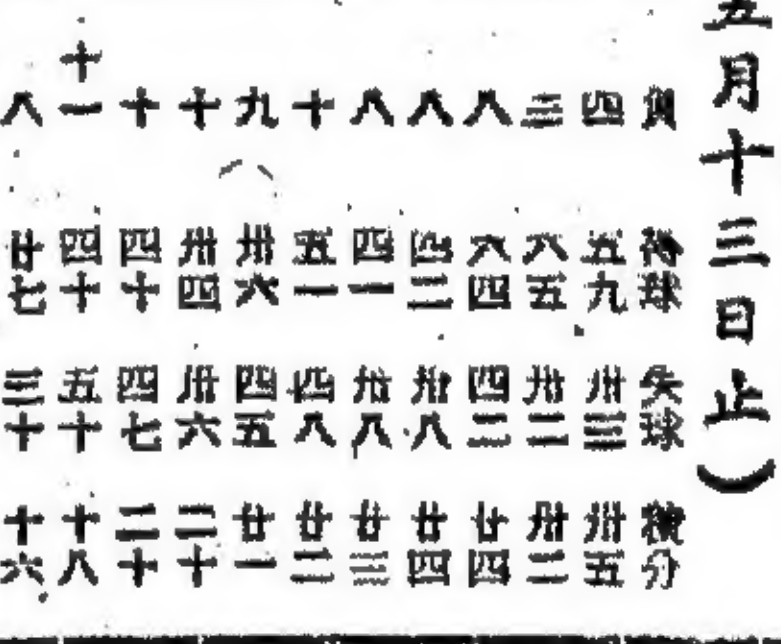 五月十三日止）
負 得球 失球 積分
四 五九 卅三 卅五
三 六五 卅二 卅二
八 六四 四二 廿四
八 四二 卅八 廿四
八 四一 卅八 廿三
十 五一 四八 廿二
九 卅六 四五 廿一
十 卅四 卅六 二十
十 四十 四七 二十
十一 四十 五十 十八
八 廿七 三十 十六